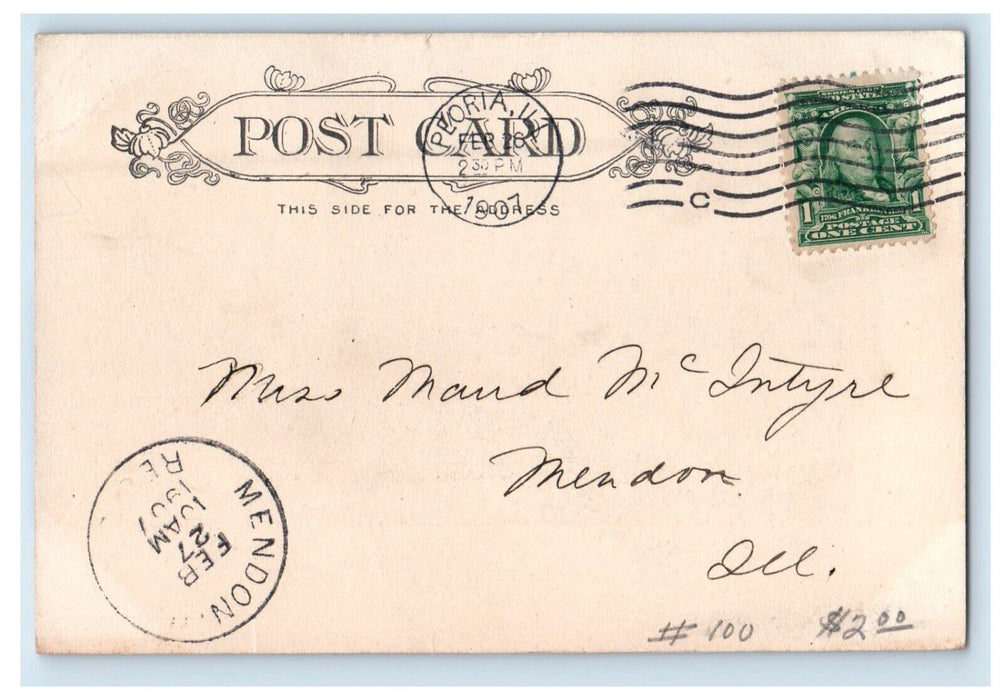 POST CARD
THIS SIDE FOR THE ADDRESS
PEORIA, ILL
FEB 26
2 30 PM
1907
C
1
1706 FRANKLIN 1790
POSTAGE
ONE CENT
Miss Maud Mc Intyre
Mendon
Ill.
MENDON.
FEB
27
10AM
1907
REC
# 100 $2.00